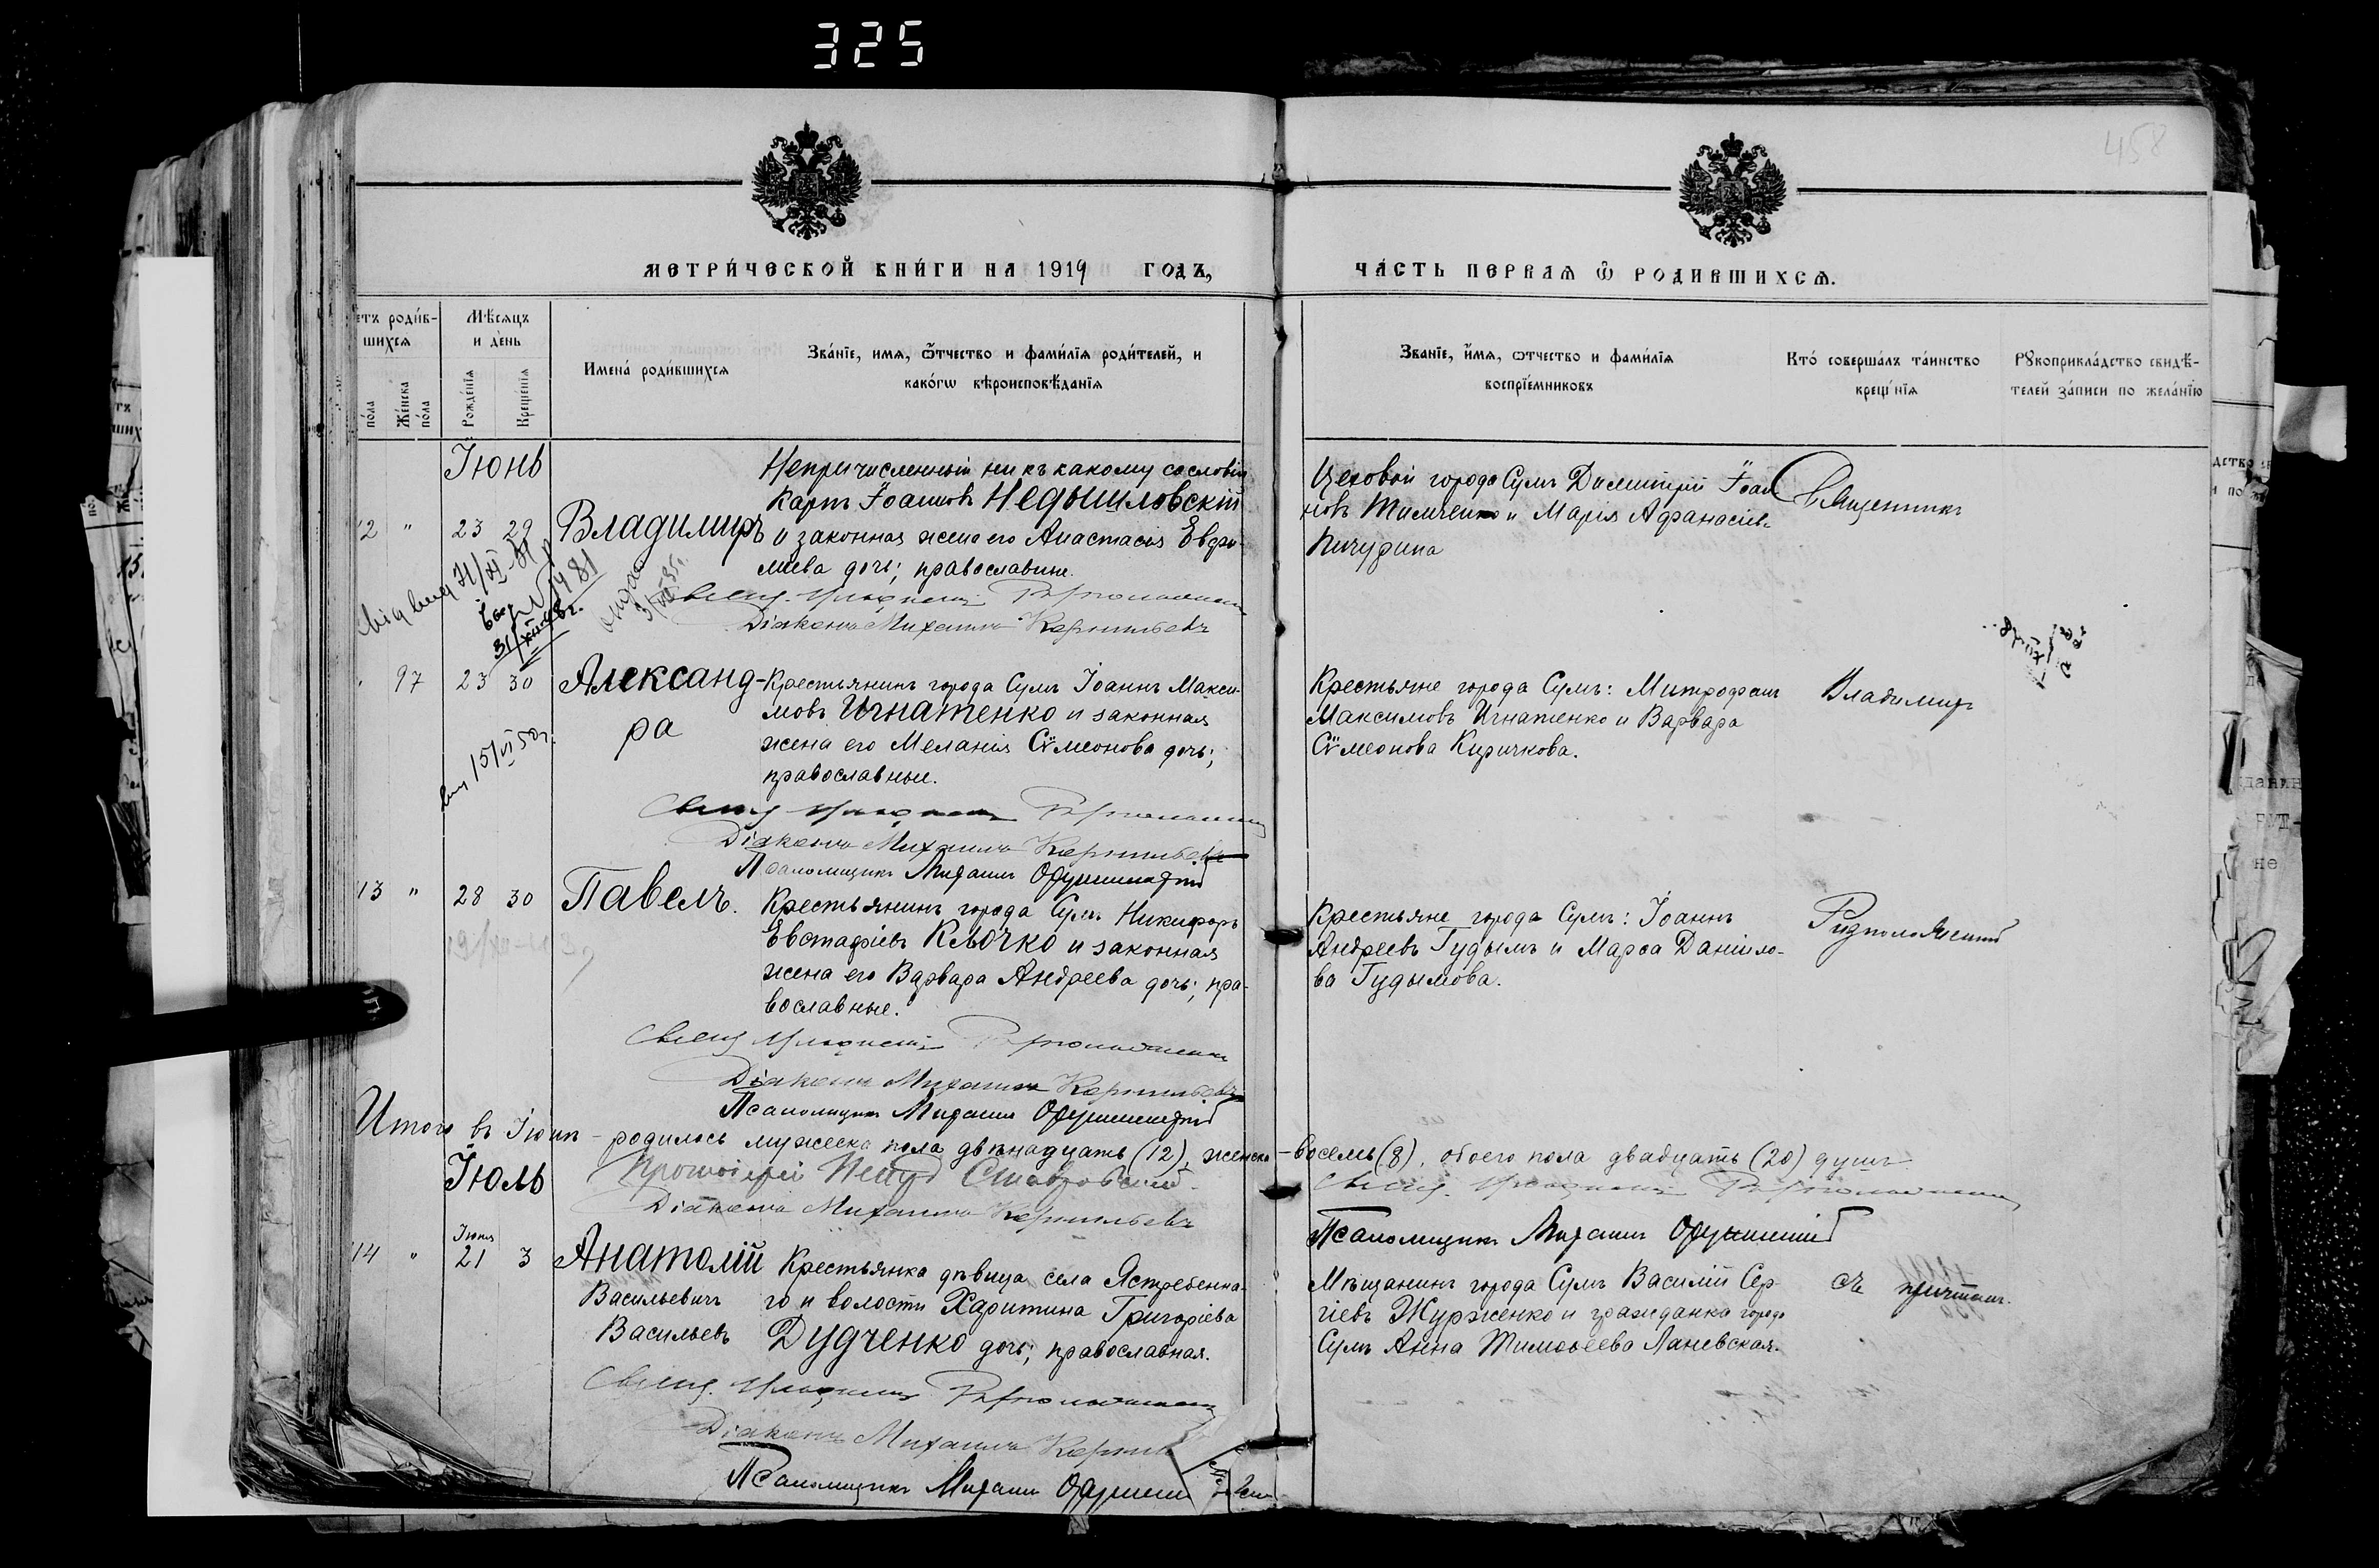 325
458
МЕТРИ́ЧЕСКОЙ КНИ́ГИ НА 1919 ГОДЪ,
ЧА́СТЬ ПЕРВАЯ Ѿ РОДИВШИХСЯ.
етъ роди́в-
шихся
по́ла
Же́нска по́ла
Мѣ́сяцъ
и де́нь
Рожде́нїя
Креще́нїя
Имена́ роди́вшихся
Зва́нїе, имя, ѻ҆́тчество и фами́лїя роди́телей, и
како́гѡ вѣроисповѣ́данїя
Зва́нїе, и҆́мя, ѻтчество и фами́лїя
воспрїе́мниковъ
Кто́ соверша́лъ та́инство
креще́нїя
Рꙋкоприкла́дство свидѣ́-
телей за́писи по жела́нїю
Іюнь
Непричисленный ни къ какому сословію
Карпъ Іоанновъ Недышловскій
12 " 23 29 Владимиръ и законная жена его Анастасія Евфи-
міева дочь; православные.
Діаконъ Михаилъ Корнильевъ
Цеховой города Сумъ Димитрій Іоан-
новъ Тимченко и Марія Афанасіев.
Пичурина
Священникъ
31/XII-48г.
97 23 30 Александ-
ра
Крестьянинъ города Сумъ Іоаннъ Макси-
мовъ Игнатенко и законная
жена его Меланія Сѵмеонова дочь;
православные.
15/VI 50г.
Діаконъ Михаилъ Корнильевъ
Псаломщикъ Михаилъ
Крестьяне города Сумъ: Митрофанъ
Максимовъ Игнатенко и Варвара
Сѵмеонова Киричкова.
Владимиръ
13 " 28 30 Павелъ.
Крестьянинъ города Сумъ Никифоръ
Евстафіевъ Клочко и законная
жена его Варвара Андреева дочь; пра-
вославные.
Діаконъ Михаилъ Корнильевъ
Псаломщикъ Михаилъ
Крестьяне города Сумъ: Іоаннъ
Андреевъ Гудымъ и Марѳа Даніило-
ва Гудымова.
Итого въ Іюнѣ - родилось мужеска пола двѣнадцать (12), женска - восемь (8), обоего пола двадцать (20) душъ
Іюль
Протоіерей Петръ Ставровскій
Діаконъ Михаилъ Корнильевъ
Псаломщикъ Михаилъ
14 " Іюня 21 3 Анатолій
Васильевичъ
Васильевъ
Крестьянка дѣвица села Ястребенна-
го и волости Харитина Григоріева
Дудченко дочь; православная.
Діаконъ Михаилъ
Псаломщикъ Михаилъ
Мѣщанинъ города Сумъ Василій Сер-
гіевъ Журженко и гражданка города
Сумъ Анна Тимоѳеева Ланевская.
съ причтомъ.